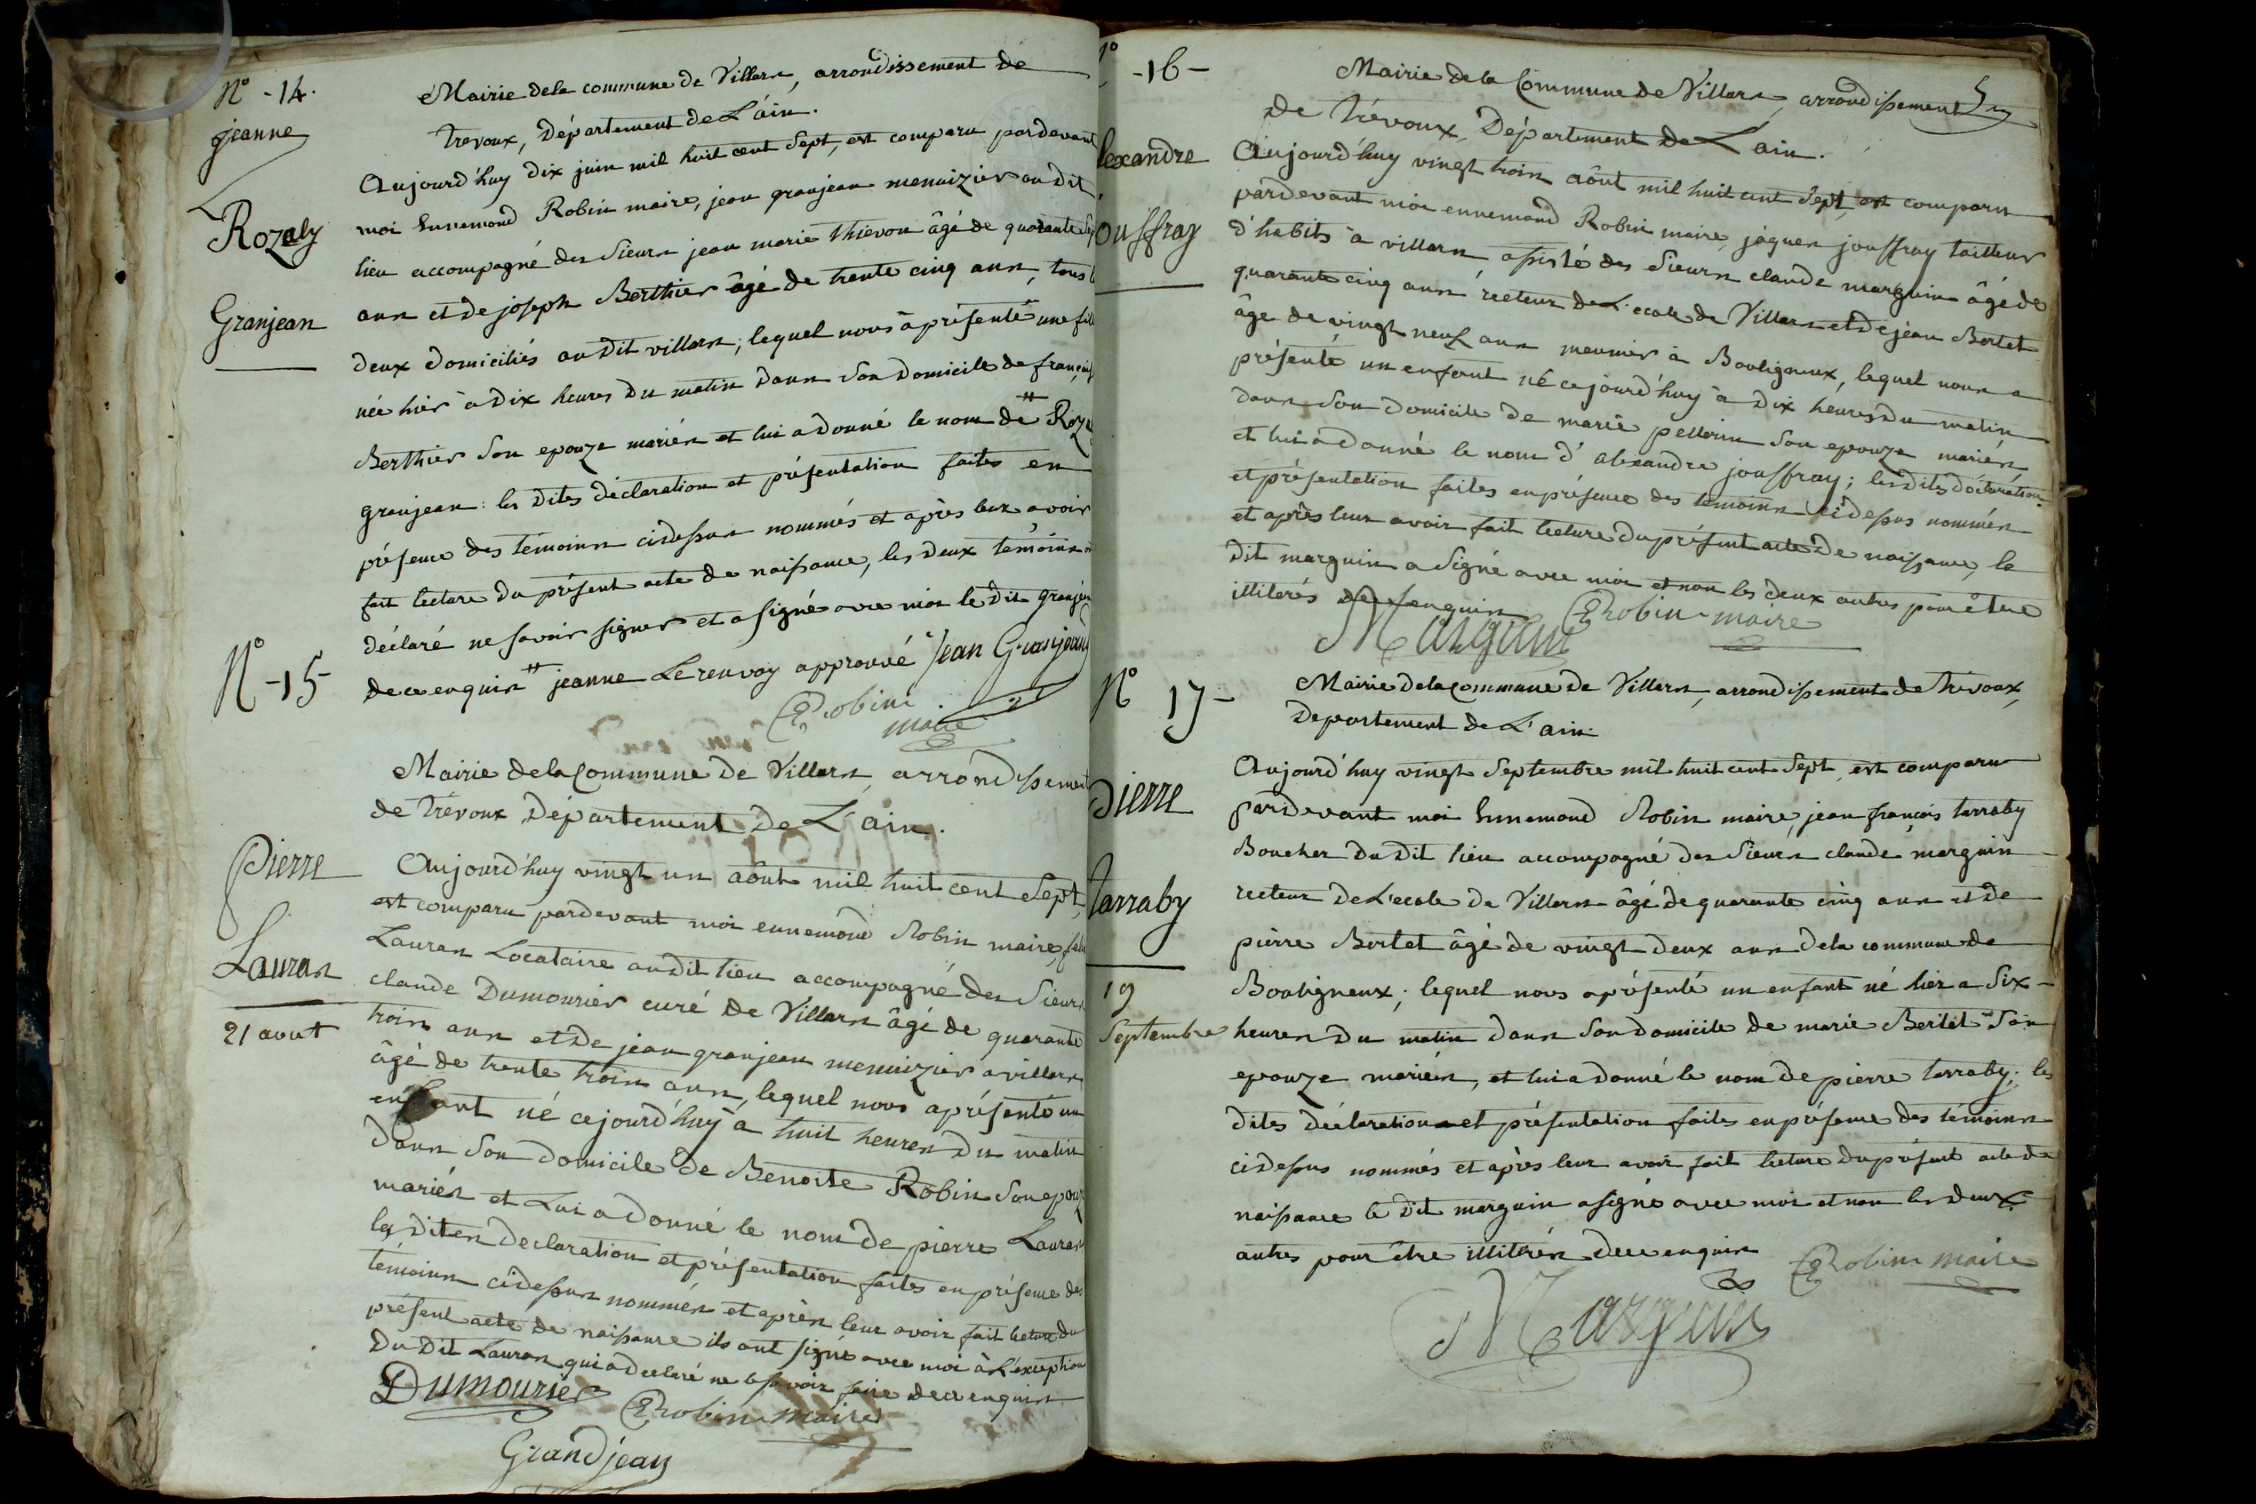 N° -14.
jeanne
Rozaly
Granjean
Mairie dela commune de Villars, arrondissement de
Trevoux, Département de L'ain.
Aujourd'huy dix juin mil huit cent sept, est comparu pardevant
moi Ennemond Robin maire, jean granjean menuizier au dit
lieu accompagné des Sieurs jean marie thievon âgé de quarante
ans et de joseph Berthier âgé de trente cinq ans, tous
deux domiciliés au dit villars, lequel nous a présenté une
née hier à dix heures du matin dans son domicile de
Berthier son epouze mariés et lui a donné le nom de #
granjean : les dites déclaration et présentation faites en
présence des témoins cidessus nommés et après leur avoir
fait lecture du présent acte de naissance, les deux témoins
déclaré ne savoir signer et a signé avec moi le dit
de ce enquis # jeanne Le renvoy approuvé Jean Granjean
ERobin
maire
N° -15-
Pierre
Lauras
21 aout
Mairie dela Commune de Villars, arrondissement
de Trévoux Département de L'ain.
Aujourd'huy vingt un août mil huit cent Sept,
est comparu pardevant moi ennemond Robin maire,
Lauras Locataire au dit lieu accompagné des Sieurs
claude Dumourier curé de Villars âgé de quarante
trois ans et de jean granjean menuizier à villars
âgé de trente trois ans, lequel nous a présenté un
enfant né cejourd'huy à huit heures du matin
dans son domicile de Benoite Robin son
mariés et Lui a donné le nom de pierre Lauras
les dites declaration et présentation faites en présence des
témoins cidessus nommés et après leur avoir fait lecture du
présent acte de naissance ils ont signé avec moi à L'exception
du dit Lauras qui a declaré ne le savoir faire de ce enquis
Dumourier
ERobin maire
Grandjean
-16-
5
lexandre
ouffray
Mairie de la Commune de Villars, arrondissement
de Trévoux, Département de L'ain.
Aujourd'huy vingt trois août mil huit cent sept, est comparu
pardevant moi ennemond Robin maire, jâques jouffray tailleur
d'habits à villars assisté des Sieurs claude marguin âgé de
quarante cinq ans recteur de L'ecole de Villars et de jean Bertet
âge de vingt neuf ans meunier à Bouligneux, lequel nous a
présenté un enfant né cejourd'huy à dix heures du matin
dans son domicile de marie pellorin son epouze mariés
et lui a donné le nom d'alexandre jouffray; les dits déclaration
et présentation faites en présence des témoins cidessus nommés
et après leur avoir fait lecture du présent acte de naissance, le
dit marguin a signé avec moi et non les deux autres pour être
illiterés de ce enquis
Marguin
ERobin maire
N° 17-
Pierre
Tarraby
19
Septembre
Mairie dela commune de Villars, arrondissement de Trévoux,
Departement de L'ain.
Aujourd'huy vingt Septembre mil huit cent Sept, est comparu
pardevant moi Ennemond Robin maire, jean françois tarraby
Boucher du dit lieu accompagné des Sieurs claude marguin
recteur de L'ecole de Villars âgé de quarante cinq ans et de
pierre Bertet âgé de vingt deux ans dela commune de
Bouligneux, lequel nous a présenté un enfant né hier a six
heures du matin dans son domicile de marie Bertet son
epouze mariés, et lui a donné le nom de pierre tarraby; les
dites déclaration et présentation faites en présence des témoins
cidessus nommés et après leur avoir fait lecture du présent acte de
naissance le dit marguin a signé avec moi et non les deux
autres pour être illitérés de ce enquis
ERobin maire
Marguin